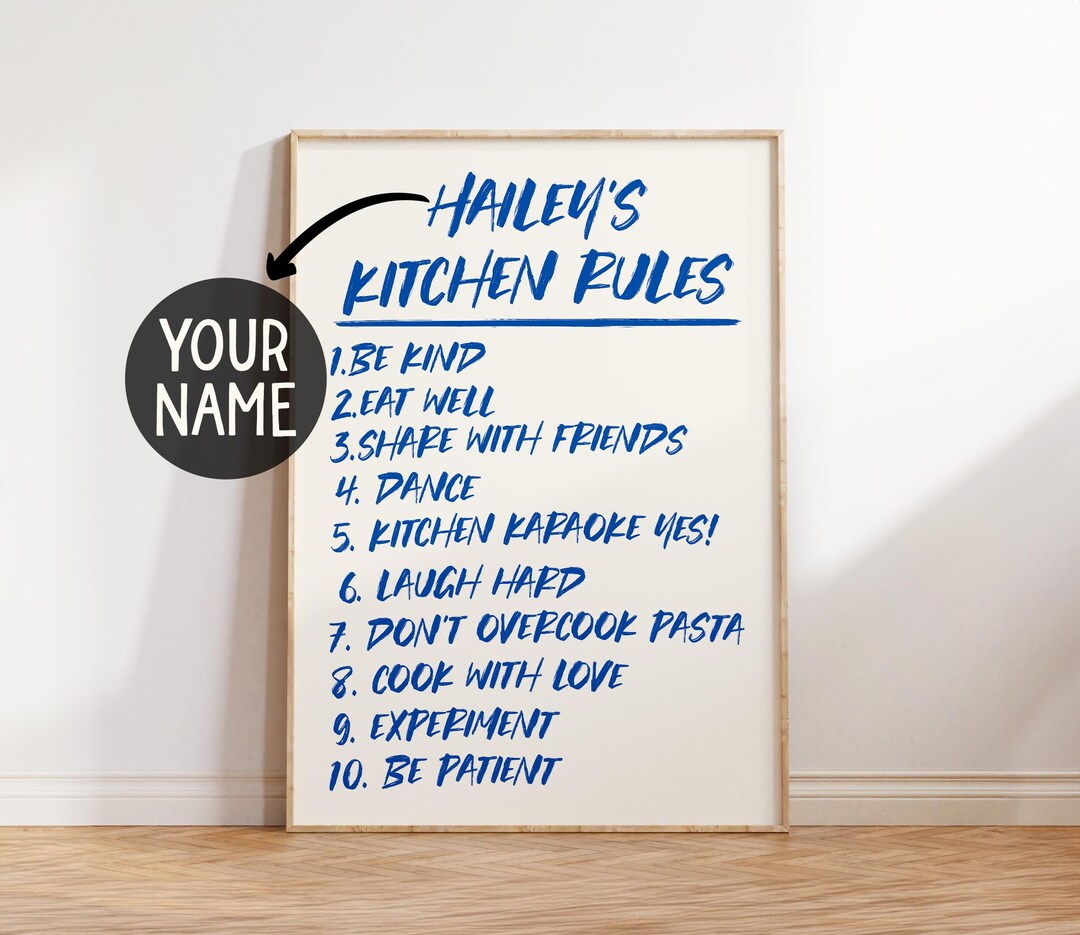 HAILEY'S
KITCHEN RULES
YOUR
NAME
1.BE KIND
2.EAT WELL
3.SHARE WITH FRIENDS
4. DANCE
5. KITCHEN KARAOKE YES!
6. LAUGH HARD
7. DON'T OVERCOOK PASTA
8. COOK WITH LOVE
9. EXPERIMENT
10. BE PATIENT